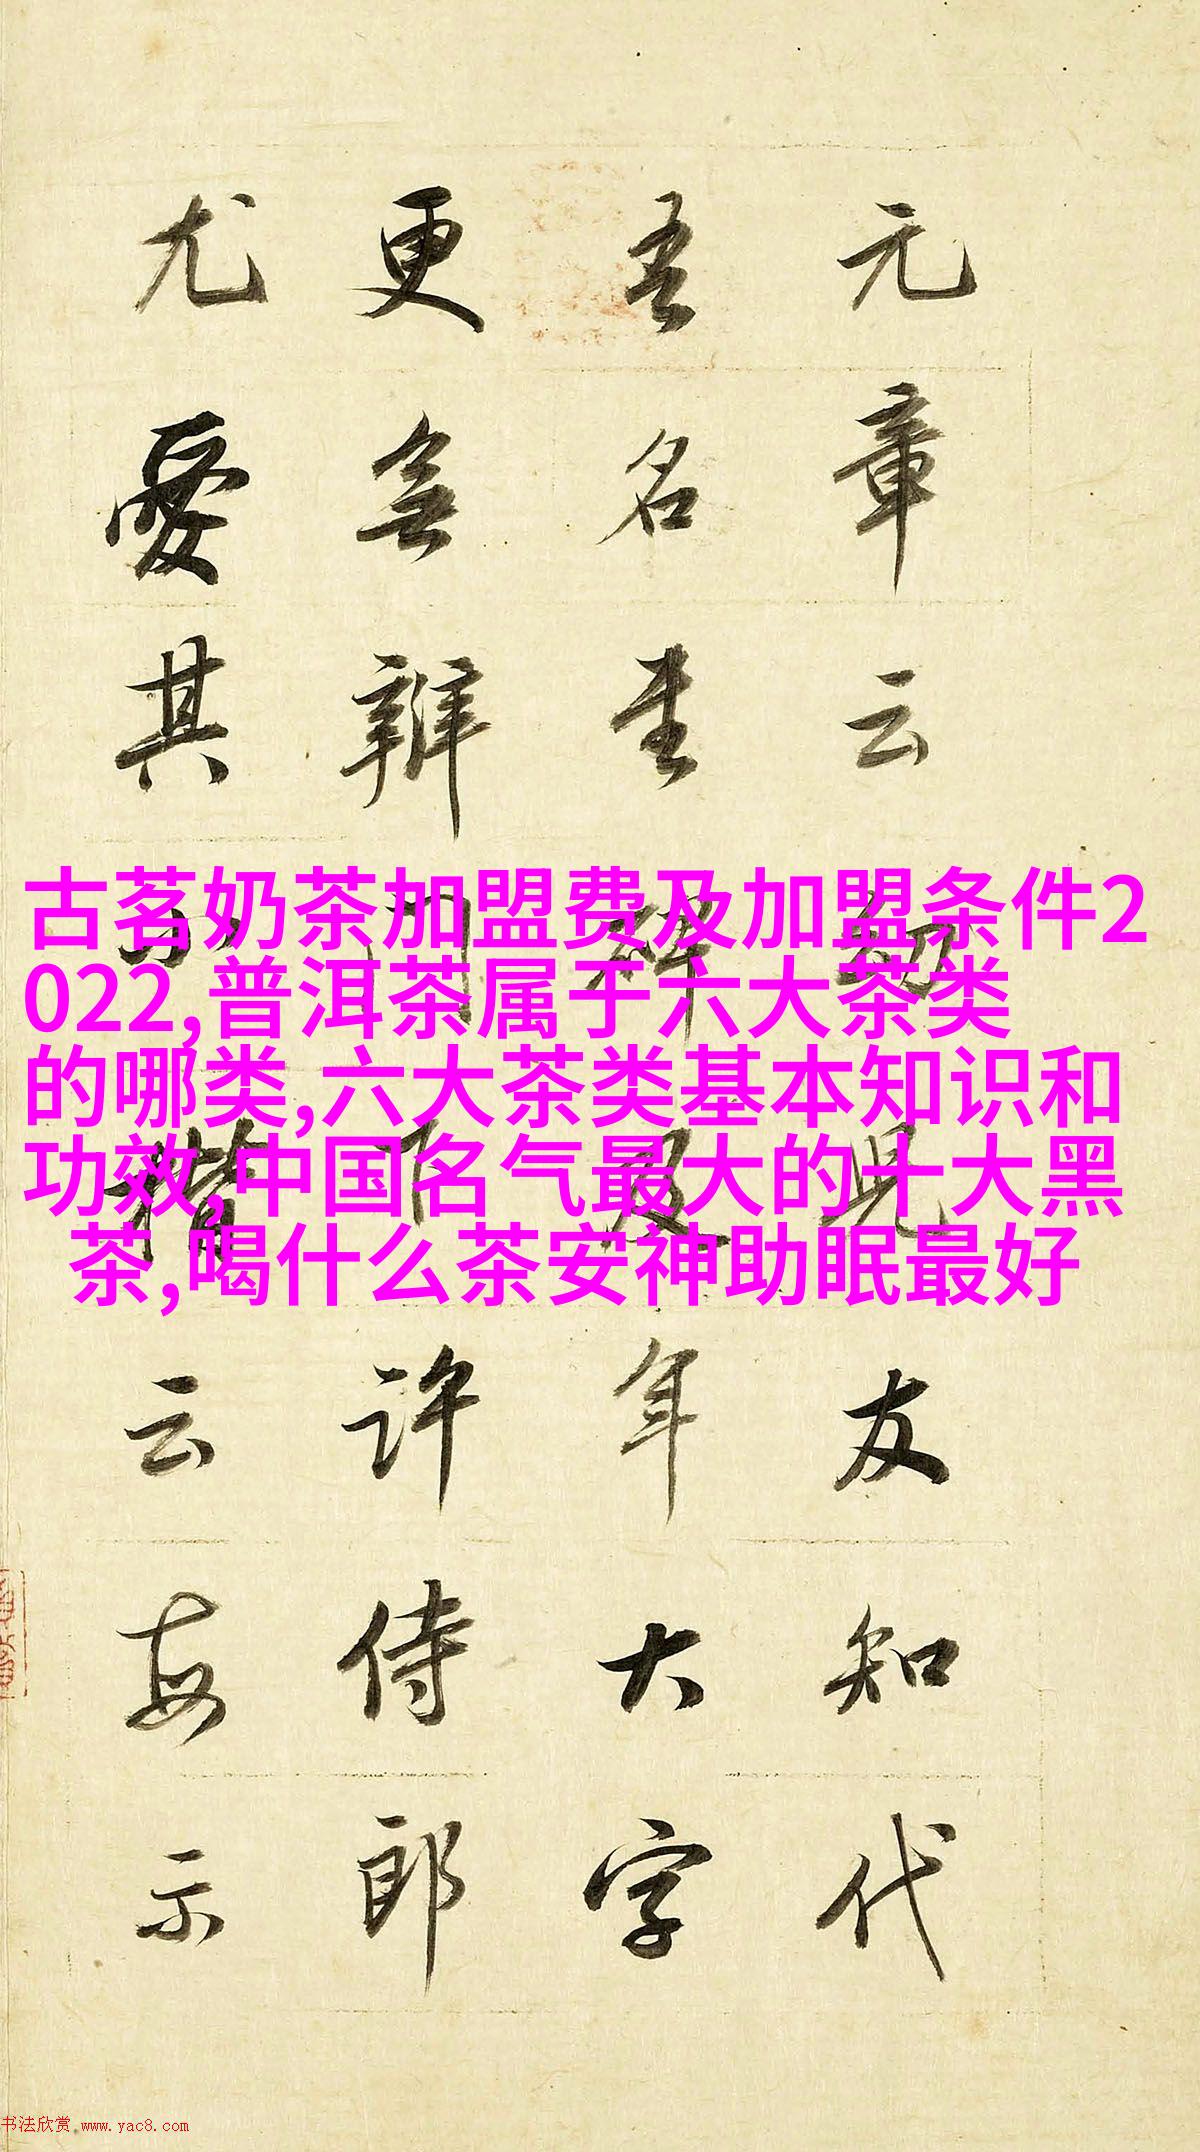 元章云幼児友知代
吾名書碑及年大字
更無辨門下許侍郎
尤愛其小楷云每示
古茗奶茶加盟费及加盟条件2
022,普洱茶属于六大茶类
的哪类,六大茶类基本知识和
功效,中国名气最大的十大黑
茶,喝什么茶安神助眠最好
书法欣赏.www.yac8.com